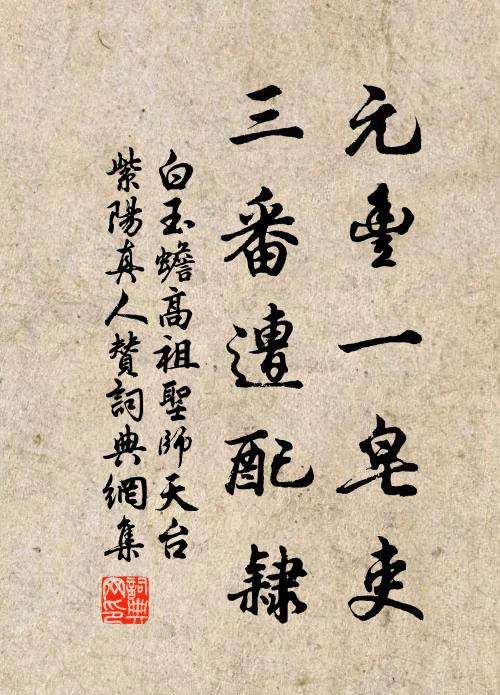 元豐一皂吏
三番遭配隸
白玉蟾高祖聖師天台
紫陽真人贊詞典網集
詞典網印